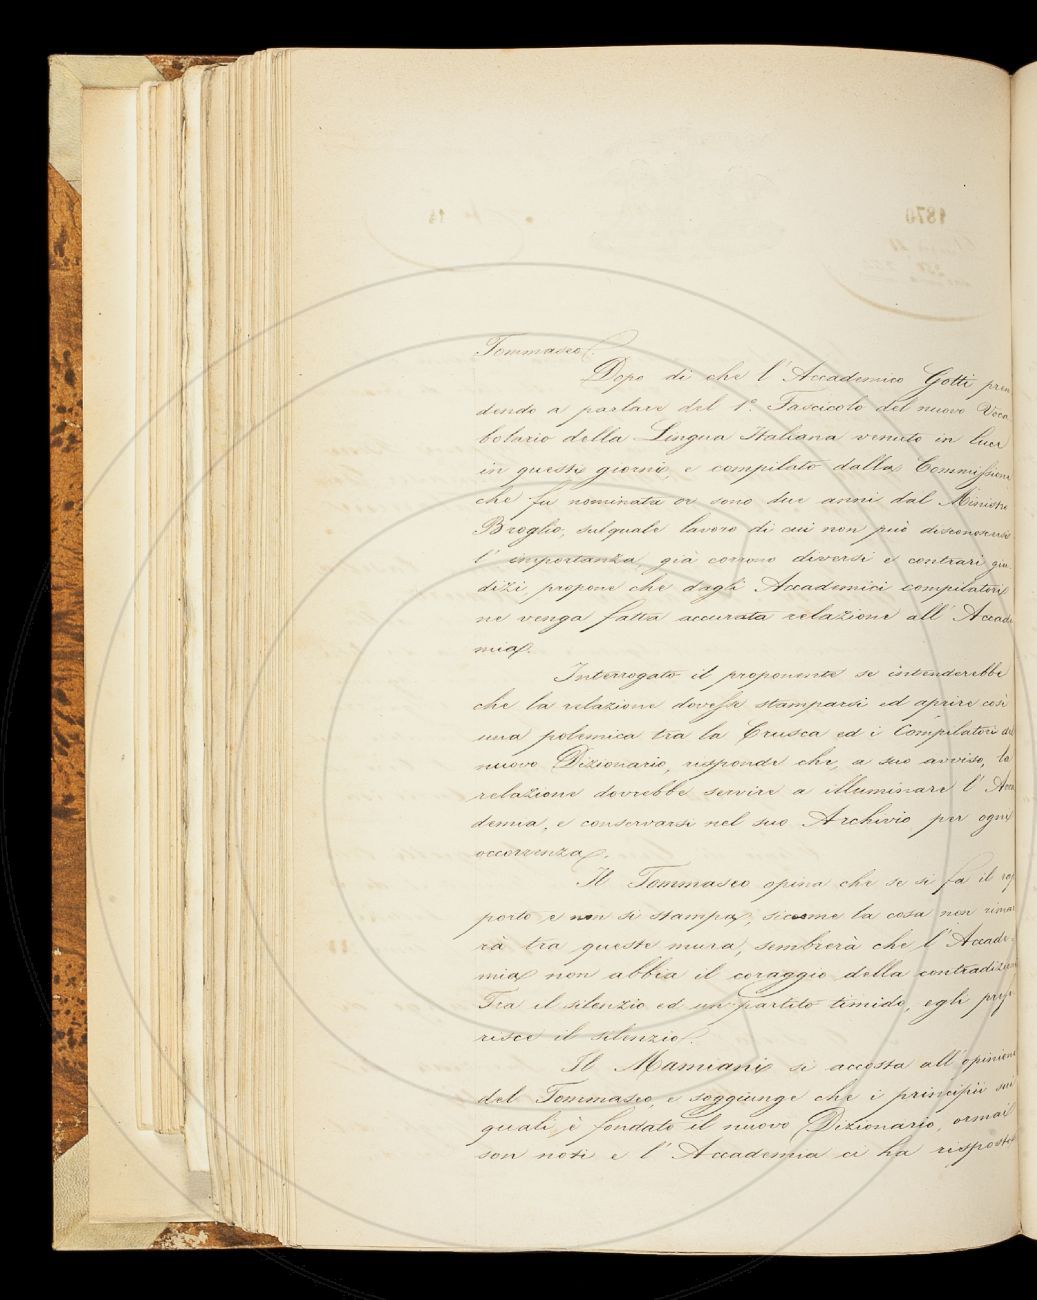 Tommaseo.
Dopo di che l'Accademico Gotti pren
dendo a parlare del 1º. Fascicolo del nuovo Voca
bolario della Lingua Italiana venuto in luce
in questi giorni, e compilato dalla Commissione
che fu nominata or sono due anni dal Ministro
Broglio, sul quale lavoro di cui non può disconoscersi
l'importanza già corrono diversi e contrari giu-
dizi propone che dagli Accademici compilatori
ne venga fatta accurata relazione all'Accade
mia.
Interrogato il proponente se intenderebbe
che la relazione dovesse stamparsi ed aprire così
una polemica tra la Crusca ed i Compilatori del
nuovo Dizionario, risponde che, a suo avviso, la
relazione dovrebbe servire a illuminare l'Acca
demia, e conservarsi nel suo Archivio per ogni
occorrenza.
Il Tommaseo opina che se si fa il rap
porto e non si stampa, siccome la cosa non rimar
rà tra queste mura, sembrerà che l'Accade-
mia non abbia il coraggio della contradizione
Tra il silenzio ed un partito timido, egli prefe
risce il silenzio.
Il Mamiani si accosta all'opinione
del Tommaseo, e soggiunge che i principii sui
quali è fondato il nuovo Dizionario, ormai
son noti e l'Accademia ci ha risposto